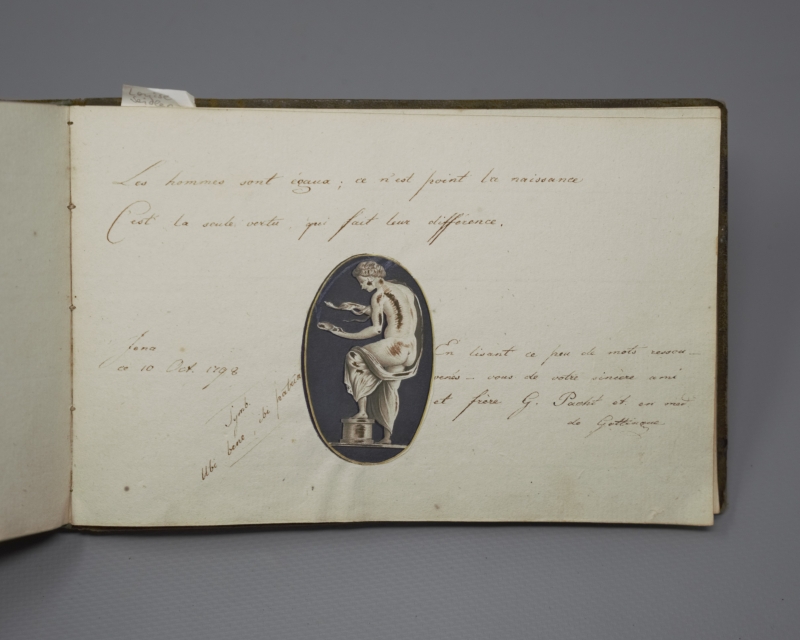 Les hommes sont égaux; ce n'est point la naissance
C'est la seule vertu qui fait leur différence.
Jena
ce 10 Oct. 1798
Symb.
Ubi bene ibi patria
En lisant ce peu de mots ressou-
venés-vous de votre sincère ami
et frère G. et en med
de Gottingue